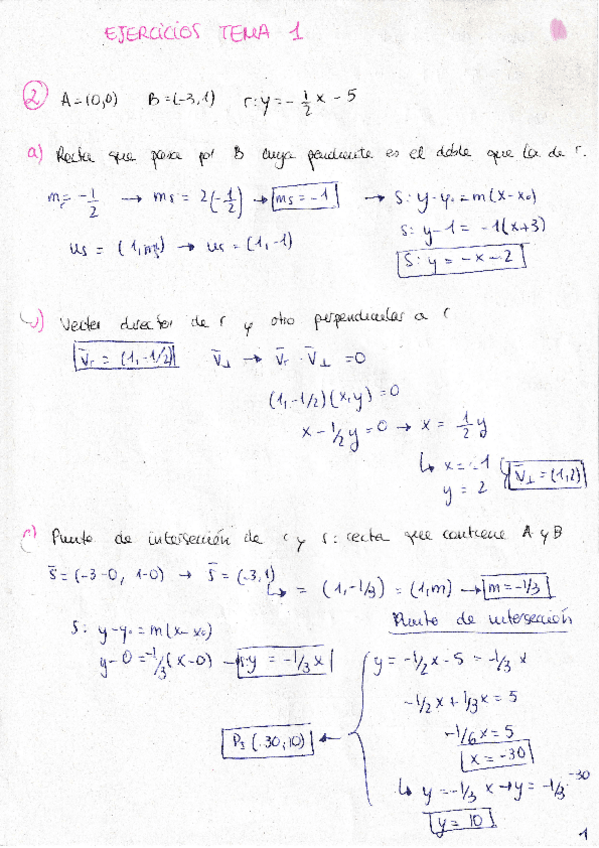 EJERCICIOS TEMA 1
2) A=(0,0) B=(-3,1) r: y = -1/2 x - 5
a) Recta que pasa por B cuya pendiente es el doble que la de r.
m_r = -1/2 → m_s = 2(-1/2) → m_s = -1 → s: y-y₀ = m(x-x₀)
s: y-1 = -1(x+3)
u_s = (1, m_s) → u_s = (1,-1)
s: y = -x-2
b) Vector director de r y otro perpendicular a r
v̄_r = (1,-1/2) v̄_⊥ → v̄_r · v̄_⊥ = 0
(1,-1/2)(x,y) = 0
x - 1/2 y = 0 → x = 1/2 y
↳ x = 1
y = 2
v̄_⊥ = (1,2)
c) Punto de intersección de r y s: recta que contiene A y B
s̄ = (-3-0, 1-0) → s̄ = (-3,1)
↳ = (1,-1/3) = (1,m) → m = -1/3
Punto de intersección
s: y-y₀ = m(x-x₀)
y-0 = -1/3(x-0) → y = -1/3 x
y = -1/2 x - 5 = -1/3 x
-1/2 x + 1/3 x = 5
-1/6 x = 5
x = -30
(-30,10)
↳ y = -1/3 x → y = -1/3 · -30
y = 10
1